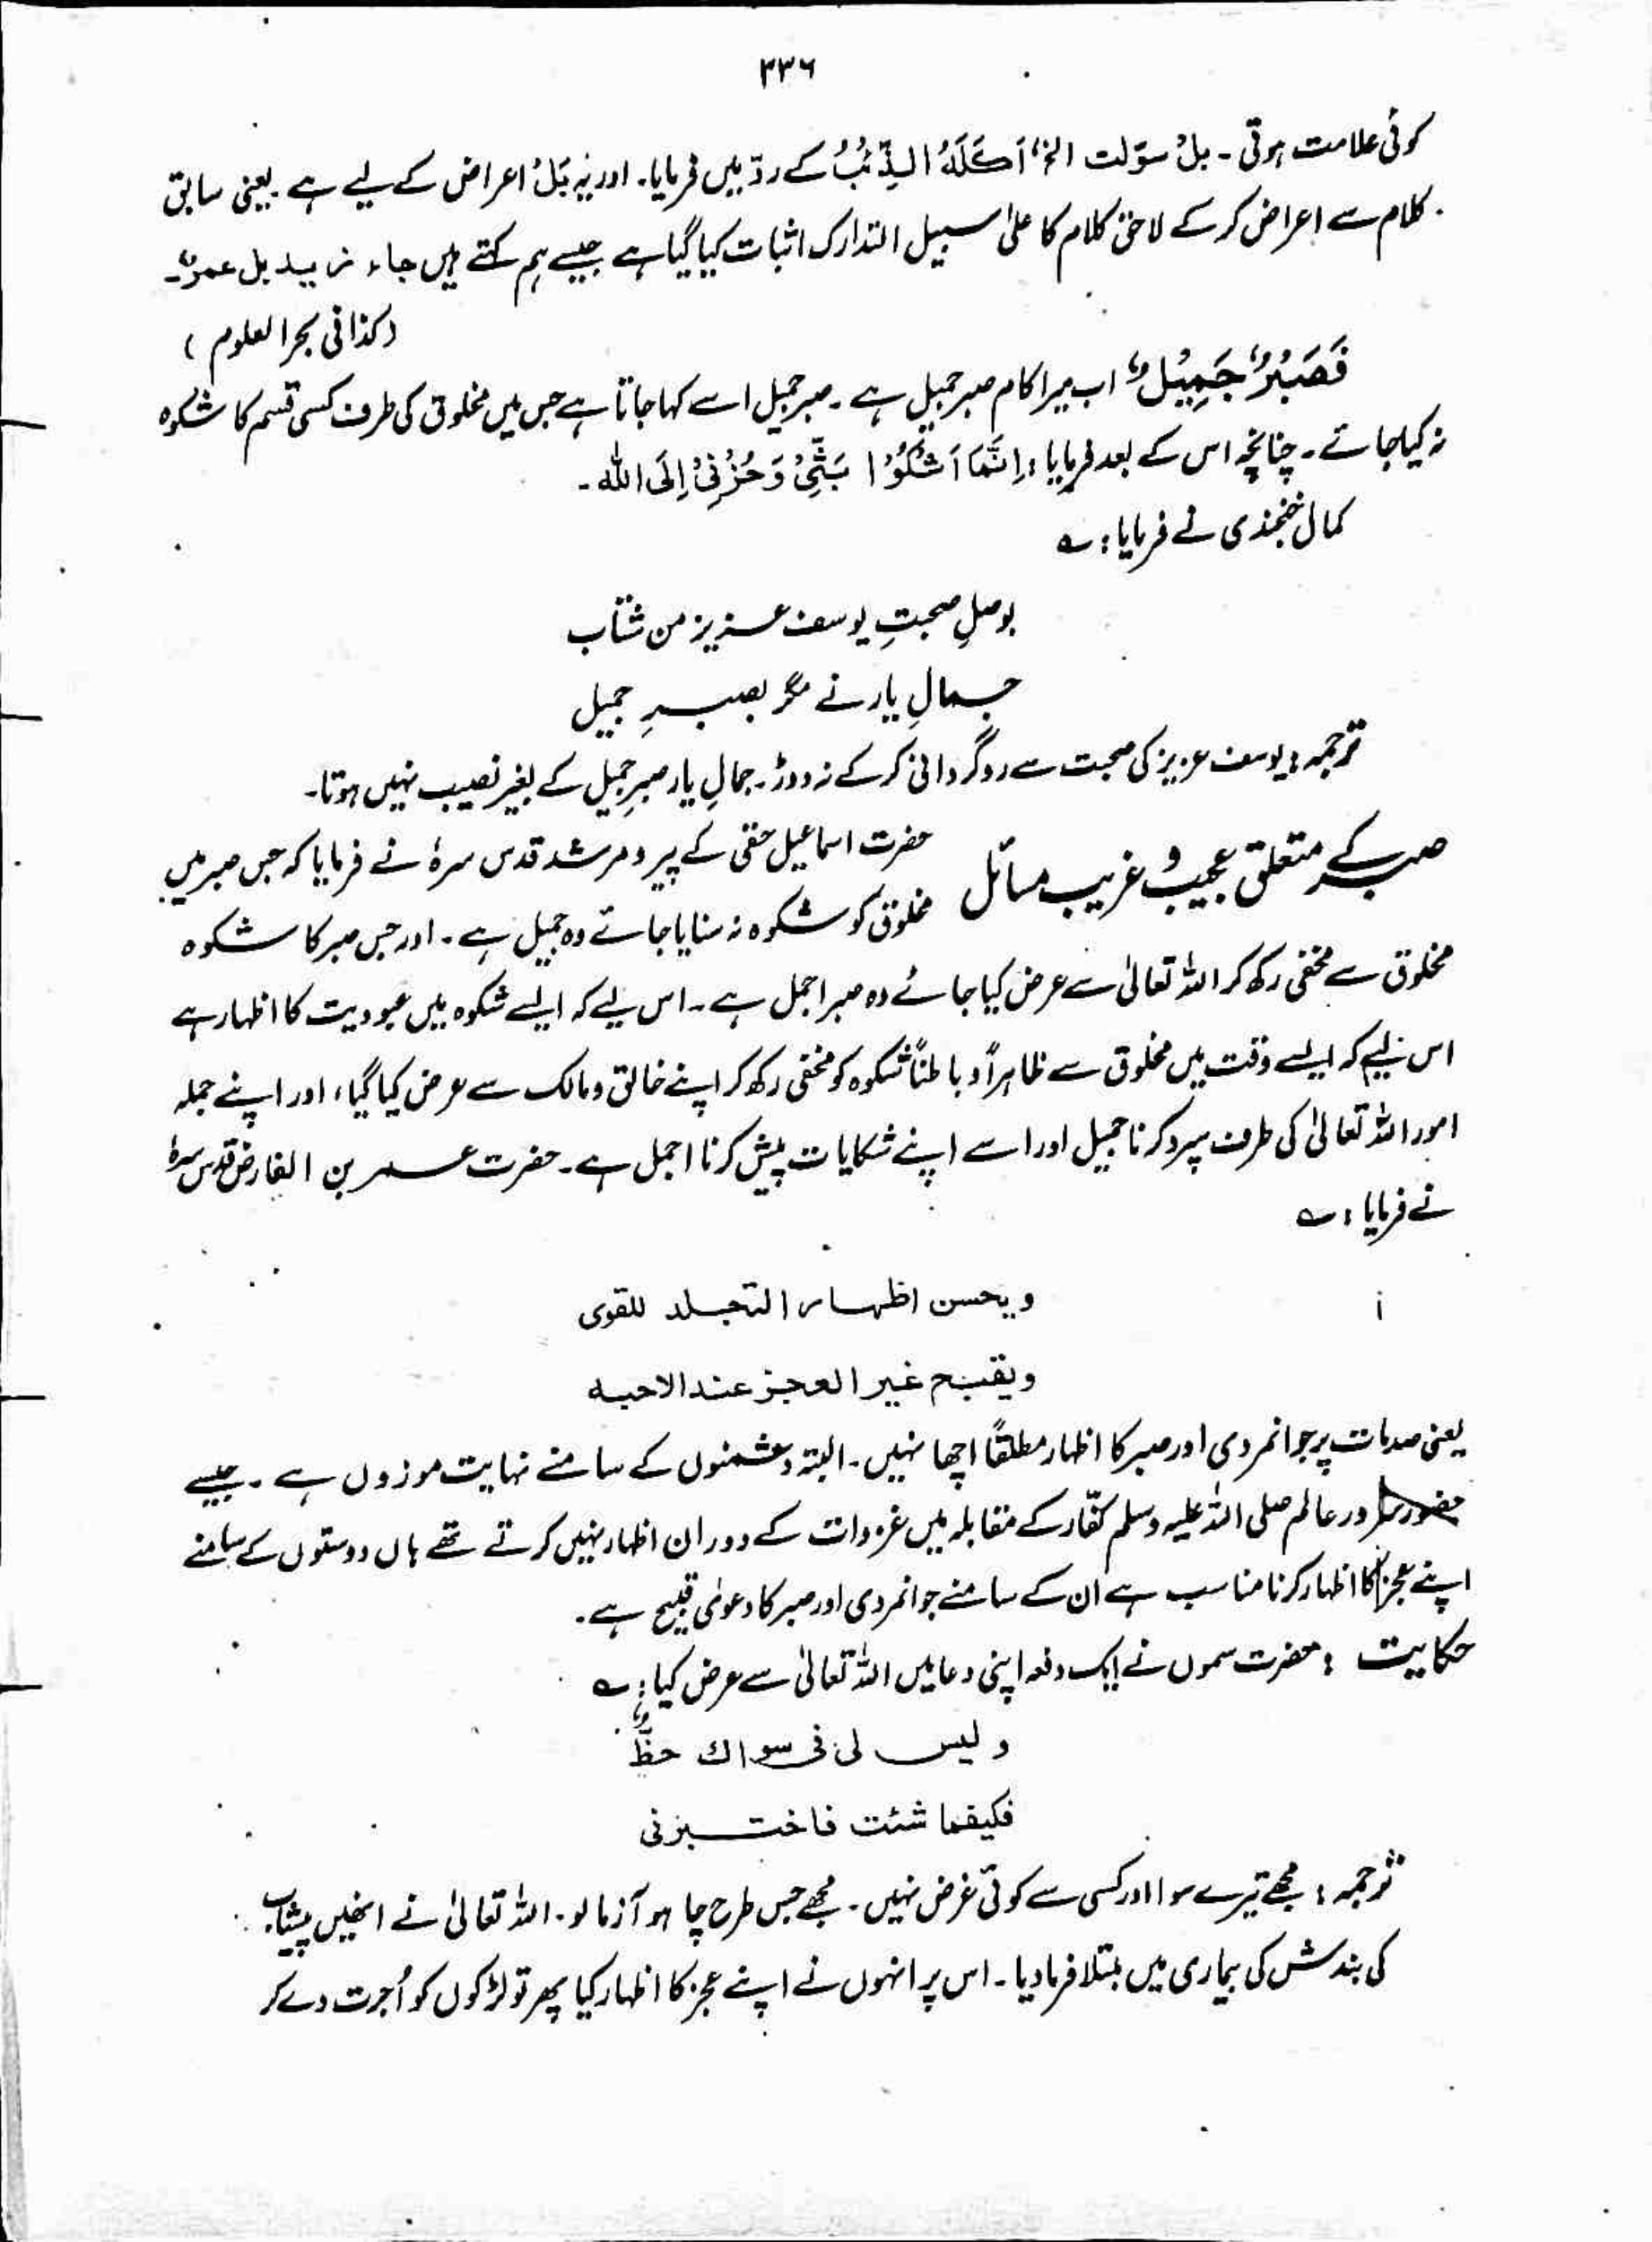 ۳۳۶
کوئی علامت ہوتی ۔ بلْ سوّلت الخ، اَکَلَهُ الذِّئْبُ کے ردّ میں فرمایا ۔ اور یہ بَلْ اعراض کے لیے ہے ۔ یعنی سابق
کلام سے اعراض کر کے لاحق کلام کا علیٰ سبیل التدارک اثبات کیا گیا ہے جیسے ہم کہتے ہیں جاء زید بل عمرو ۔
(کذا فی بحر العلوم)
فَصَبْرٌ جَمِیْلٌ اب میرا کام صبر جمیل ہے ۔ صبر جمیل اسے کہا جاتا ہے جس میں مخلوق کی طرف کسی قسم کا شکوہ
نہ کیا جائے ۔ چنانچہ اس کے بعد فرمایا : اِنَّمَا اَشْکُوْا بَثِّیْ وَحُزْنِیْ اِلَی اللہ ۔
کمال خجندی نے فرمایا : ؎
بوصلِ صحبتِ یوسف عزیز من شتاب
جمالِ یار نے مگر بصبرِ جمیل
ترجمہ : یوسف عزیز کی صحبت سے روگردانی کر کے نہ دوڑ ۔ جمالِ یار صبرِ جمیل کے بغیر نصیب نہیں ہوتا ۔
صبر کے متعلق عجیب و غریب مسائل
حضرت اسماعیل حقی کے پیر و مرشد قدس سرہٗ نے فرمایا کہ جس صبر میں
مخلوق کو شکوہ نہ سنایا جائے وہ جمیل ہے ۔ اور جس صبر کا شکوہ
مخلوق سے مخفی رکھ کر اللہ تعالیٰ سے عرض کیا جائے وہ صبر اجمل ہے ۔ اس لیے کہ ایسے شکوہ میں عبودیت کا اظہار ہے
اس لیے کہ ایسے وقت میں مخلوق سے ظاہراً و باطناً شکوہ کو مخفی رکھ کر اپنے خالق و مالک سے عرض کیا گیا ، اور اپنے جملہ
امور اللہ تعالیٰ کی طرف سپرد کرنا جمیل اور اسے اپنے شکایات پیش کرنا اجمل ہے ۔ حضرت عمر بن الفارض قدس سرہٗ
نے فرمایا : ؎
ویحسن اظہار التجلد للقوی
ویقبح غیر العجز عند الاحبه
یعنی صدمات پر جوانمردی اور صبر کا اظہار مطلقاً اچھا نہیں ۔ البتہ دشمنوں کے سامنے نہایت موزوں ہے ۔ جیسے
حضور سرور عالم صلی اللہ علیہ وسلم کفّار کے مقابلہ میں غزوات کے دوران اظہار نہیں کرتے تھے ہاں دوستوں کے سامنے
اپنے عجز کا اظہار کرنا مناسب ہے ان کے سامنے جوانمردی اور صبر کا دعوٰی قبیح ہے ۔
حکایت : حضرت سمون نے ایک دفعہ اپنی دعا میں اللہ تعالیٰ سے عرض کیا : ؎
و لیس لی فی سواك حظٌّ
فکیفما شئت فاختبرنی
ترجمہ : مجھے تیرے سوا اور کسی سے کوئی غرض نہیں ۔ مجھے جس طرح چاہو آزما لو ۔ اللہ تعالیٰ نے انھیں پیشاب
کی بندش کی بیماری میں مبتلا فرما دیا ۔ اس پر انہوں نے اپنے عجز کا اظہار کیا پھر تو لڑکوں کو اُجرت دے کر